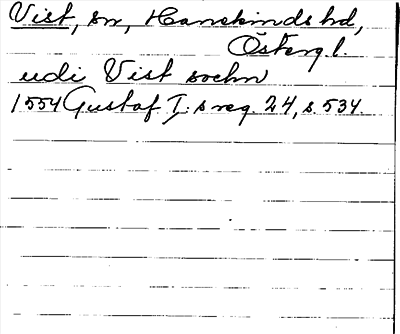 Vist, sn, Hanekinds hd,
Österg l.
udi Vist sochn
1554 Gustaf I:s reg. 24, s. 534.